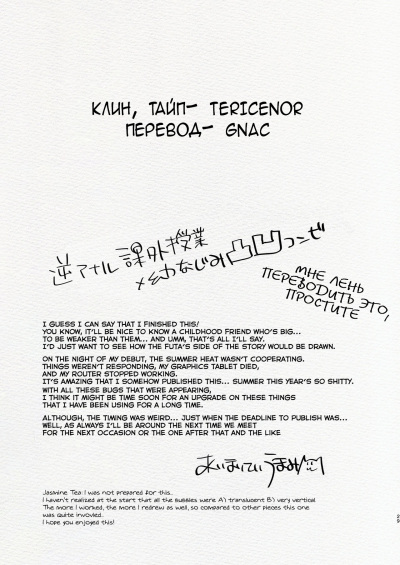 КЛИН, ТАЙП- TERICENOR
ПЕРЕВОД- GNAC
逆アナル課外授業
×幼なじみ凸凹コンビ
МНЕ ЛЕНЬ
ПЕРЕВОДИТЬ ЭТО,
ПРОСТИТЕ
I GUESS I CAN SAY THAT I FINISHED THIS!
YOU KNOW, IT'LL BE NICE TO KNOW A CHILDHOOD FRIEND WHO'S BIG...
TO BE WEAKER THAN THEM... AND UMM, THAT'S ALL I'LL SAY.
I'D JUST WANT TO SEE HOW THE FUTA'S SIDE OF THE STORY WOULD BE DRAWN.
ON THE NIGHT OF MY DEBUT, THE SUMMER HEAT WASN'T COOPERATING.
THINGS WEREN'T RESPONDING, MY GRAPHICS TABLET DIED,
AND MY ROUTER STOPPED WORKING.
IT'S AMAZING THAT I SOMEHOW PUBLISHED THIS... SUMMER THIS YEAR'S SO SHITTY.
WITH ALL THESE BUGS THAT WERE APPEARING,
I THINK IT MIGHT BE TIME SOON FOR AN UPGRADE ON THESE THINGS
THAT I HAVE BEEN USING FOR A LONG TIME.
ALTHOUGH, THE TIMING WAS WEIRD... JUST WHEN THE DEADLINE TO PUBLISH WAS...
WELL, AS ALWAYS I'LL BE AROUND THE NEXT TIME WE MEET
FOR THE NEXT OCCASION OR THE ONE AFTER THAT AND THE LIKE
Jasmine Tea: I was not prepared for this..
I haven't realized at the start that all the bubbles were A) translucent B) very vertical
The more I worked, the more I redrew as well, so compared to other pieces this one
was quite invovled.
I hope you enjoyed this!